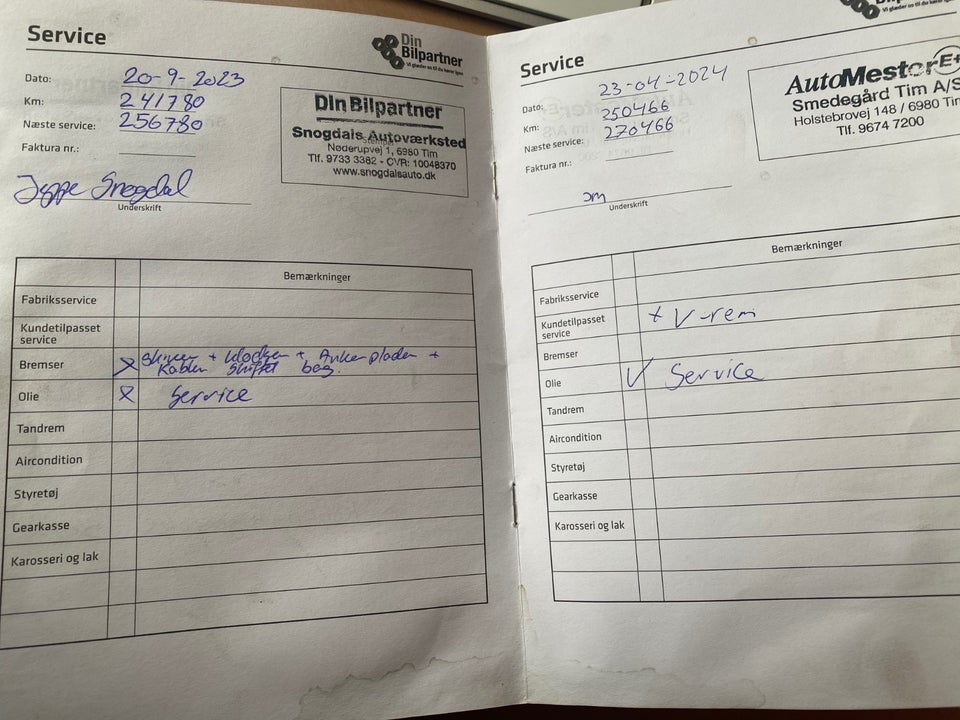 Service
Din
Bilpartner
Vi glæder os til du kører igen
Dato: 20-9-2023
Km: 241780
Næste service: 256780
Faktura nr.:
Din Bilpartner
Snogdals Autoværksted
Nøderupvej 1, 6980 Tim
Tlf. 9733 3382 - CVR: 10048370
www.snogdalsauto.dk
Jeppe Snogdal
Underskrift
Bemærkninger
Fabriksservice
Kundetilpasset
service
Bremser X skiver + klodser + Ankerplader +
Kabler skiftet bag.
Olie X Service
Tandrem
Aircondition
Styretøj
Gearkasse
Karosseri og lak
Service
Bilpartner
Dato: 23-04-2024
Km: 250466
Næste service: 270466
Faktura nr.:
AutoMester E+
Smedegård Tim A/S
Holstebrovej 148 / 6980 Tim
Tlf. 9674 7200
Underskrift
Bemærkninger
Fabriksservice
Kundetilpasset
service + V-rem
Bremser
Olie V Service
Tandrem
Aircondition
Styretøj
Gearkasse
Karosseri og lak